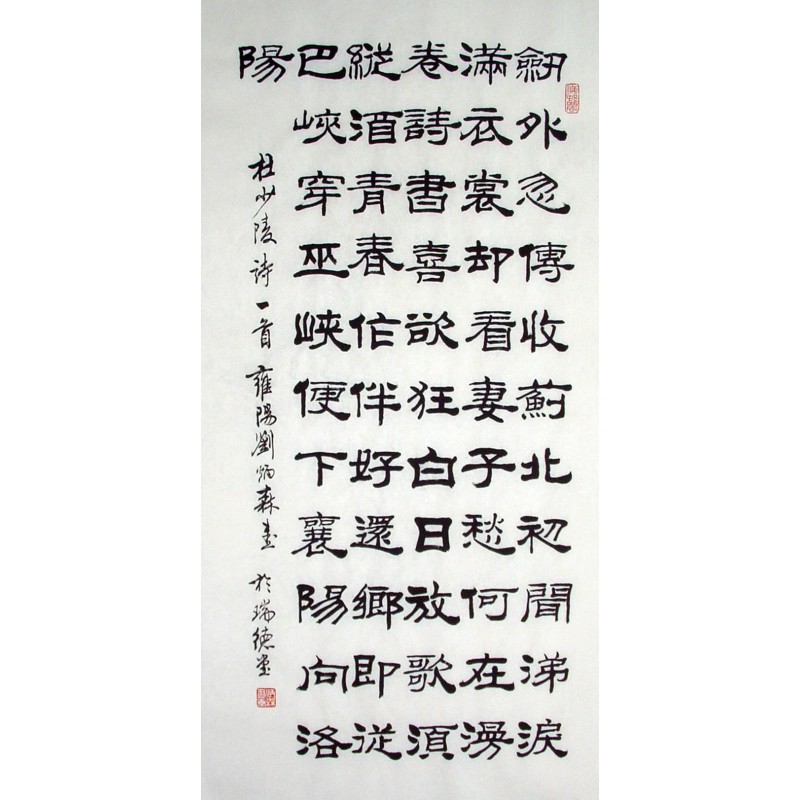 劔外忽傳收薊北初聞涕淚
滿衣裳却看妻子愁何在漫
卷詩書喜欲狂白日放歌須
縱酒青春作伴好還鄉即從
巴峽穿巫峽便下襄陽向洛
陽
杜少陵诗一首 雍陽劉炳森書 於瑞德堂